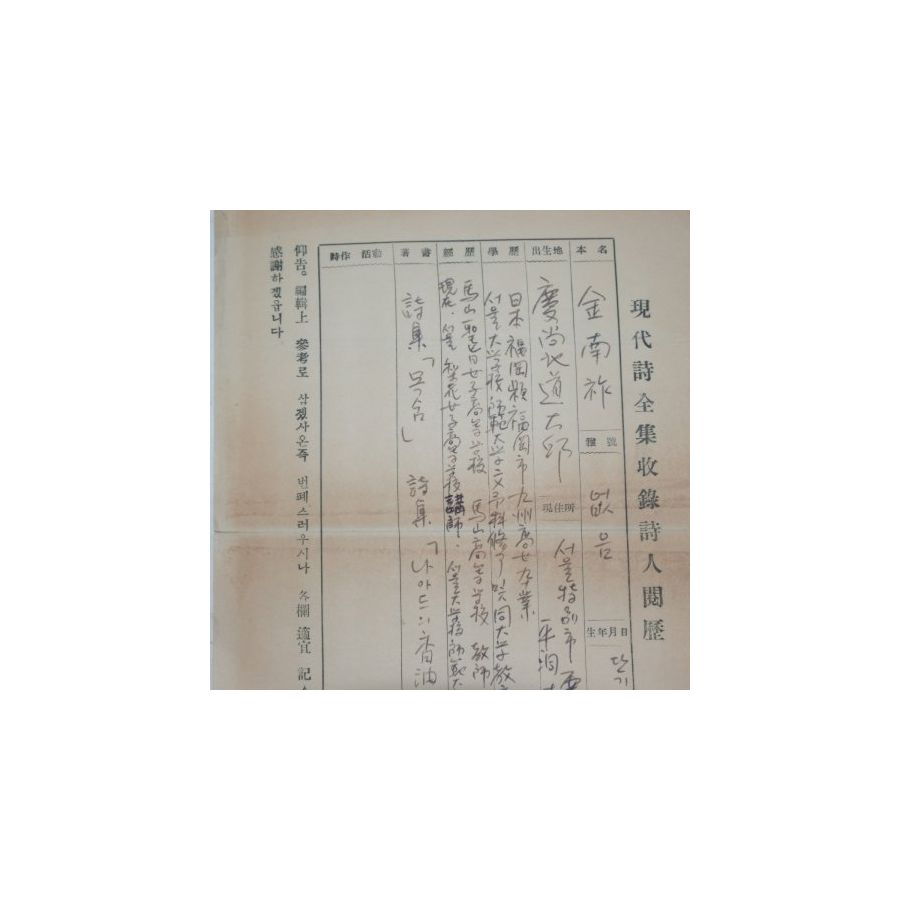 現代詩全集收錄詩人閱歷
本名 金南祚 雅號 없음 生年月日 단기
出生地 慶尚北道 大邱 現住所 서울特別市
平洞
學歷 日本 福岡縣 福岡市 九州高女 卒業
서울大学校 師範大学 文予科修了 및 同大学教
經歷 馬山 聖旨女子高等学校 馬山高等学校 教師
現在. 서울 梨花女子高等学校 講師. 서울大学校 師範大
著書 詩集「목숨」 詩集「나아드의香油
詩作 活動
仰告。編輯上 參考로 삼겠사온즉 번폐스러우시나 各欄 適宜 記
感謝하겠읍니다